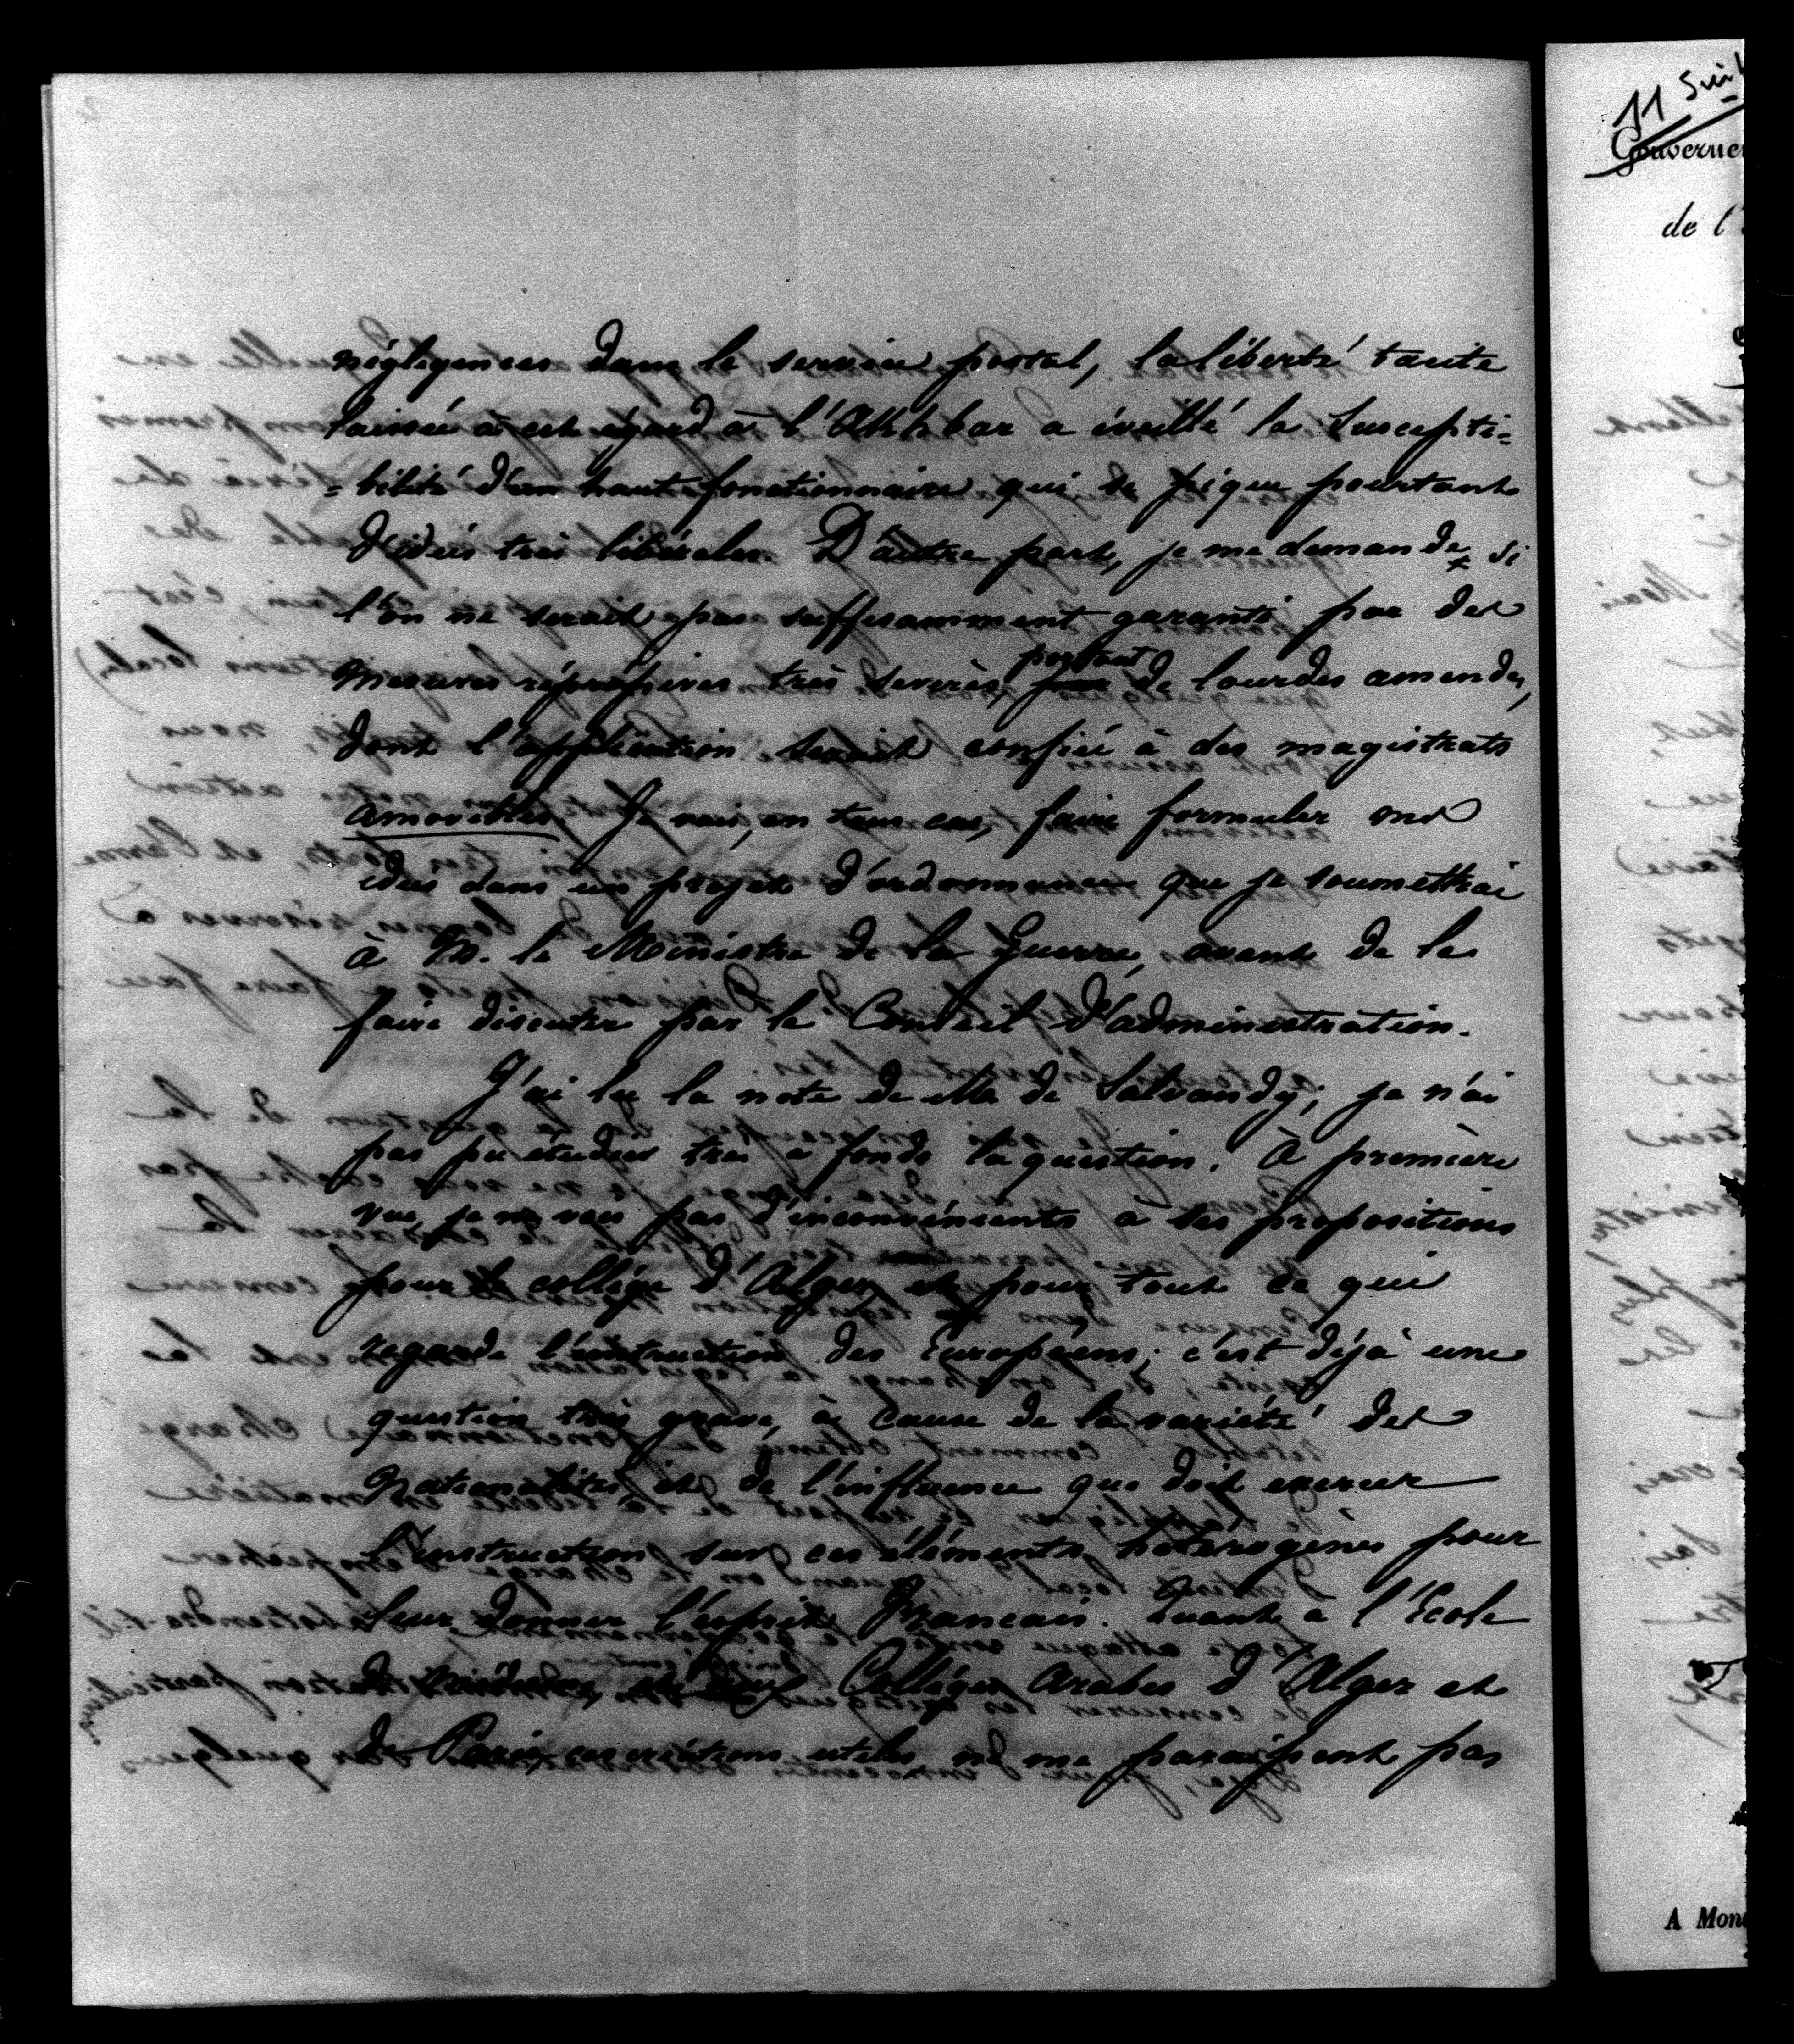 négligences dans le service postal, la liberté tacite
laissée à cet égard à l'Akhbar a éveillé la suscepti=
=bilité d'un haut fonctionnaire qui se pique pourtant
d'idées très libérales. D'autre part, je me demande si
l'on ne serait pas suffisamment garanti par des
mesures répressives très sévères, portant de lourdes amendes,
dont l'application serait confiée à des magistrats
amovibles. Je vais, en tous cas, faire formuler mes
idées dans un projet d'ordonnance que je soumettrai
à M. le Ministre de la Guerre, avant de le
faire discuter par le Conseil d'administration.
J'ai lu la note de M. de Salvandy; je n'ai
pas pu étudier très à fonds la question. À première
vue, je ne vois pas d'inconvénients à ses propositions
pour le collège d'Alger et pour tout ce qui
regarde l'instruction des Européens; c'est déjà une
question très grave, à cause de la variété des
nationalités et de l'influence que doit exercer
l'instruction sur ces éléments hétérogènes pour
leur donner l'esprit Français. Quant à l'École
Collèges arabes d'Alger et
de Paris, ces créations utiles ne me paraissent pas
11 Juin
Gouverne
de l'
A Mon